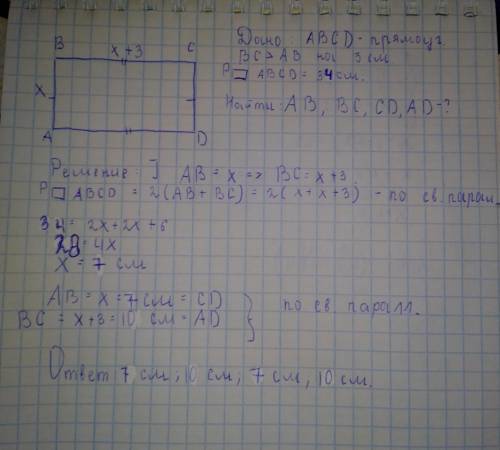 B x+3 C
x
A D
Дано: ABCD - прямоуг.
BC > AB на 3 см
P▭ ABCD = 34 см.
Найти: AB, BC, CD, AD-?
Решение: ] AB = x => BC = x+3
P▭ ABCD = 2(AB+BC) = 2(x+x+3) - по св. парал.
34 = 2x+2x+6
28 = 4x
x = 7 см
AB = x = 7 см = CD
BC = x+3 = 10 см = AD } по св. паралл.
Ответ 7 см; 10 см; 7 см, 10 см.